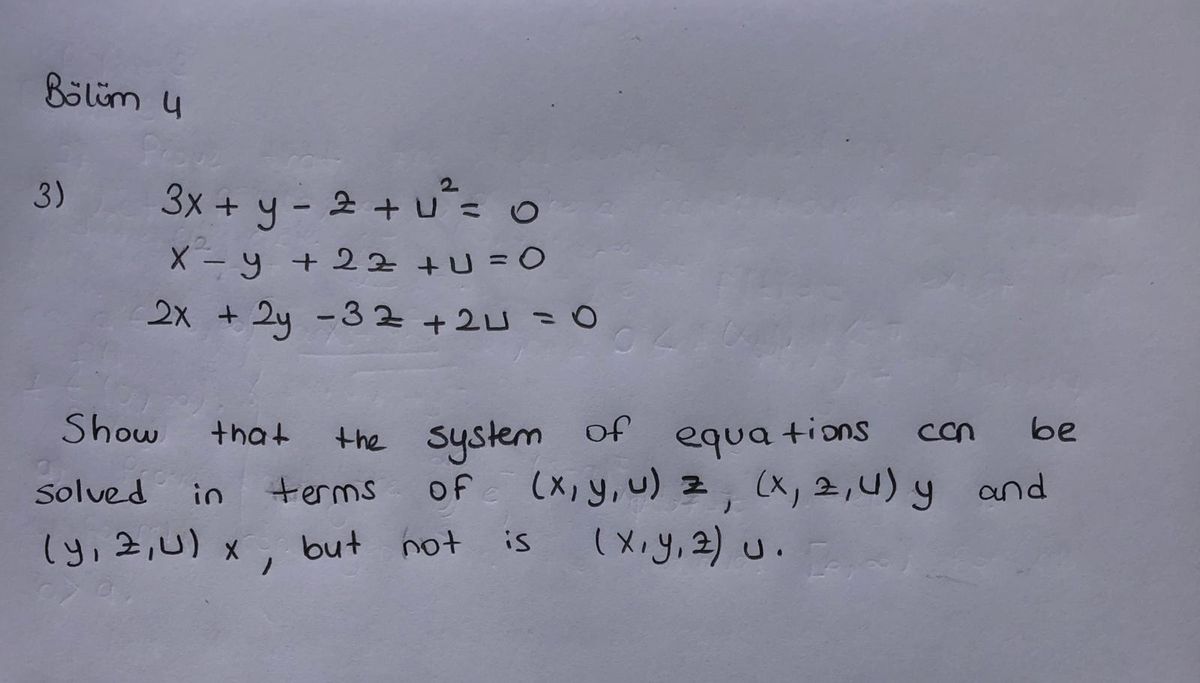 Bölüm 4
3) 3x + y - z + u² = 0
x² - y + 2z + u = 0
2x + 2y - 3z + 2u = 0
Show that the system of equations can be
solved in terms of (x, y, u) z, (x, z, u) y and
(y, z, u) x, but not is (x, y, z) u.